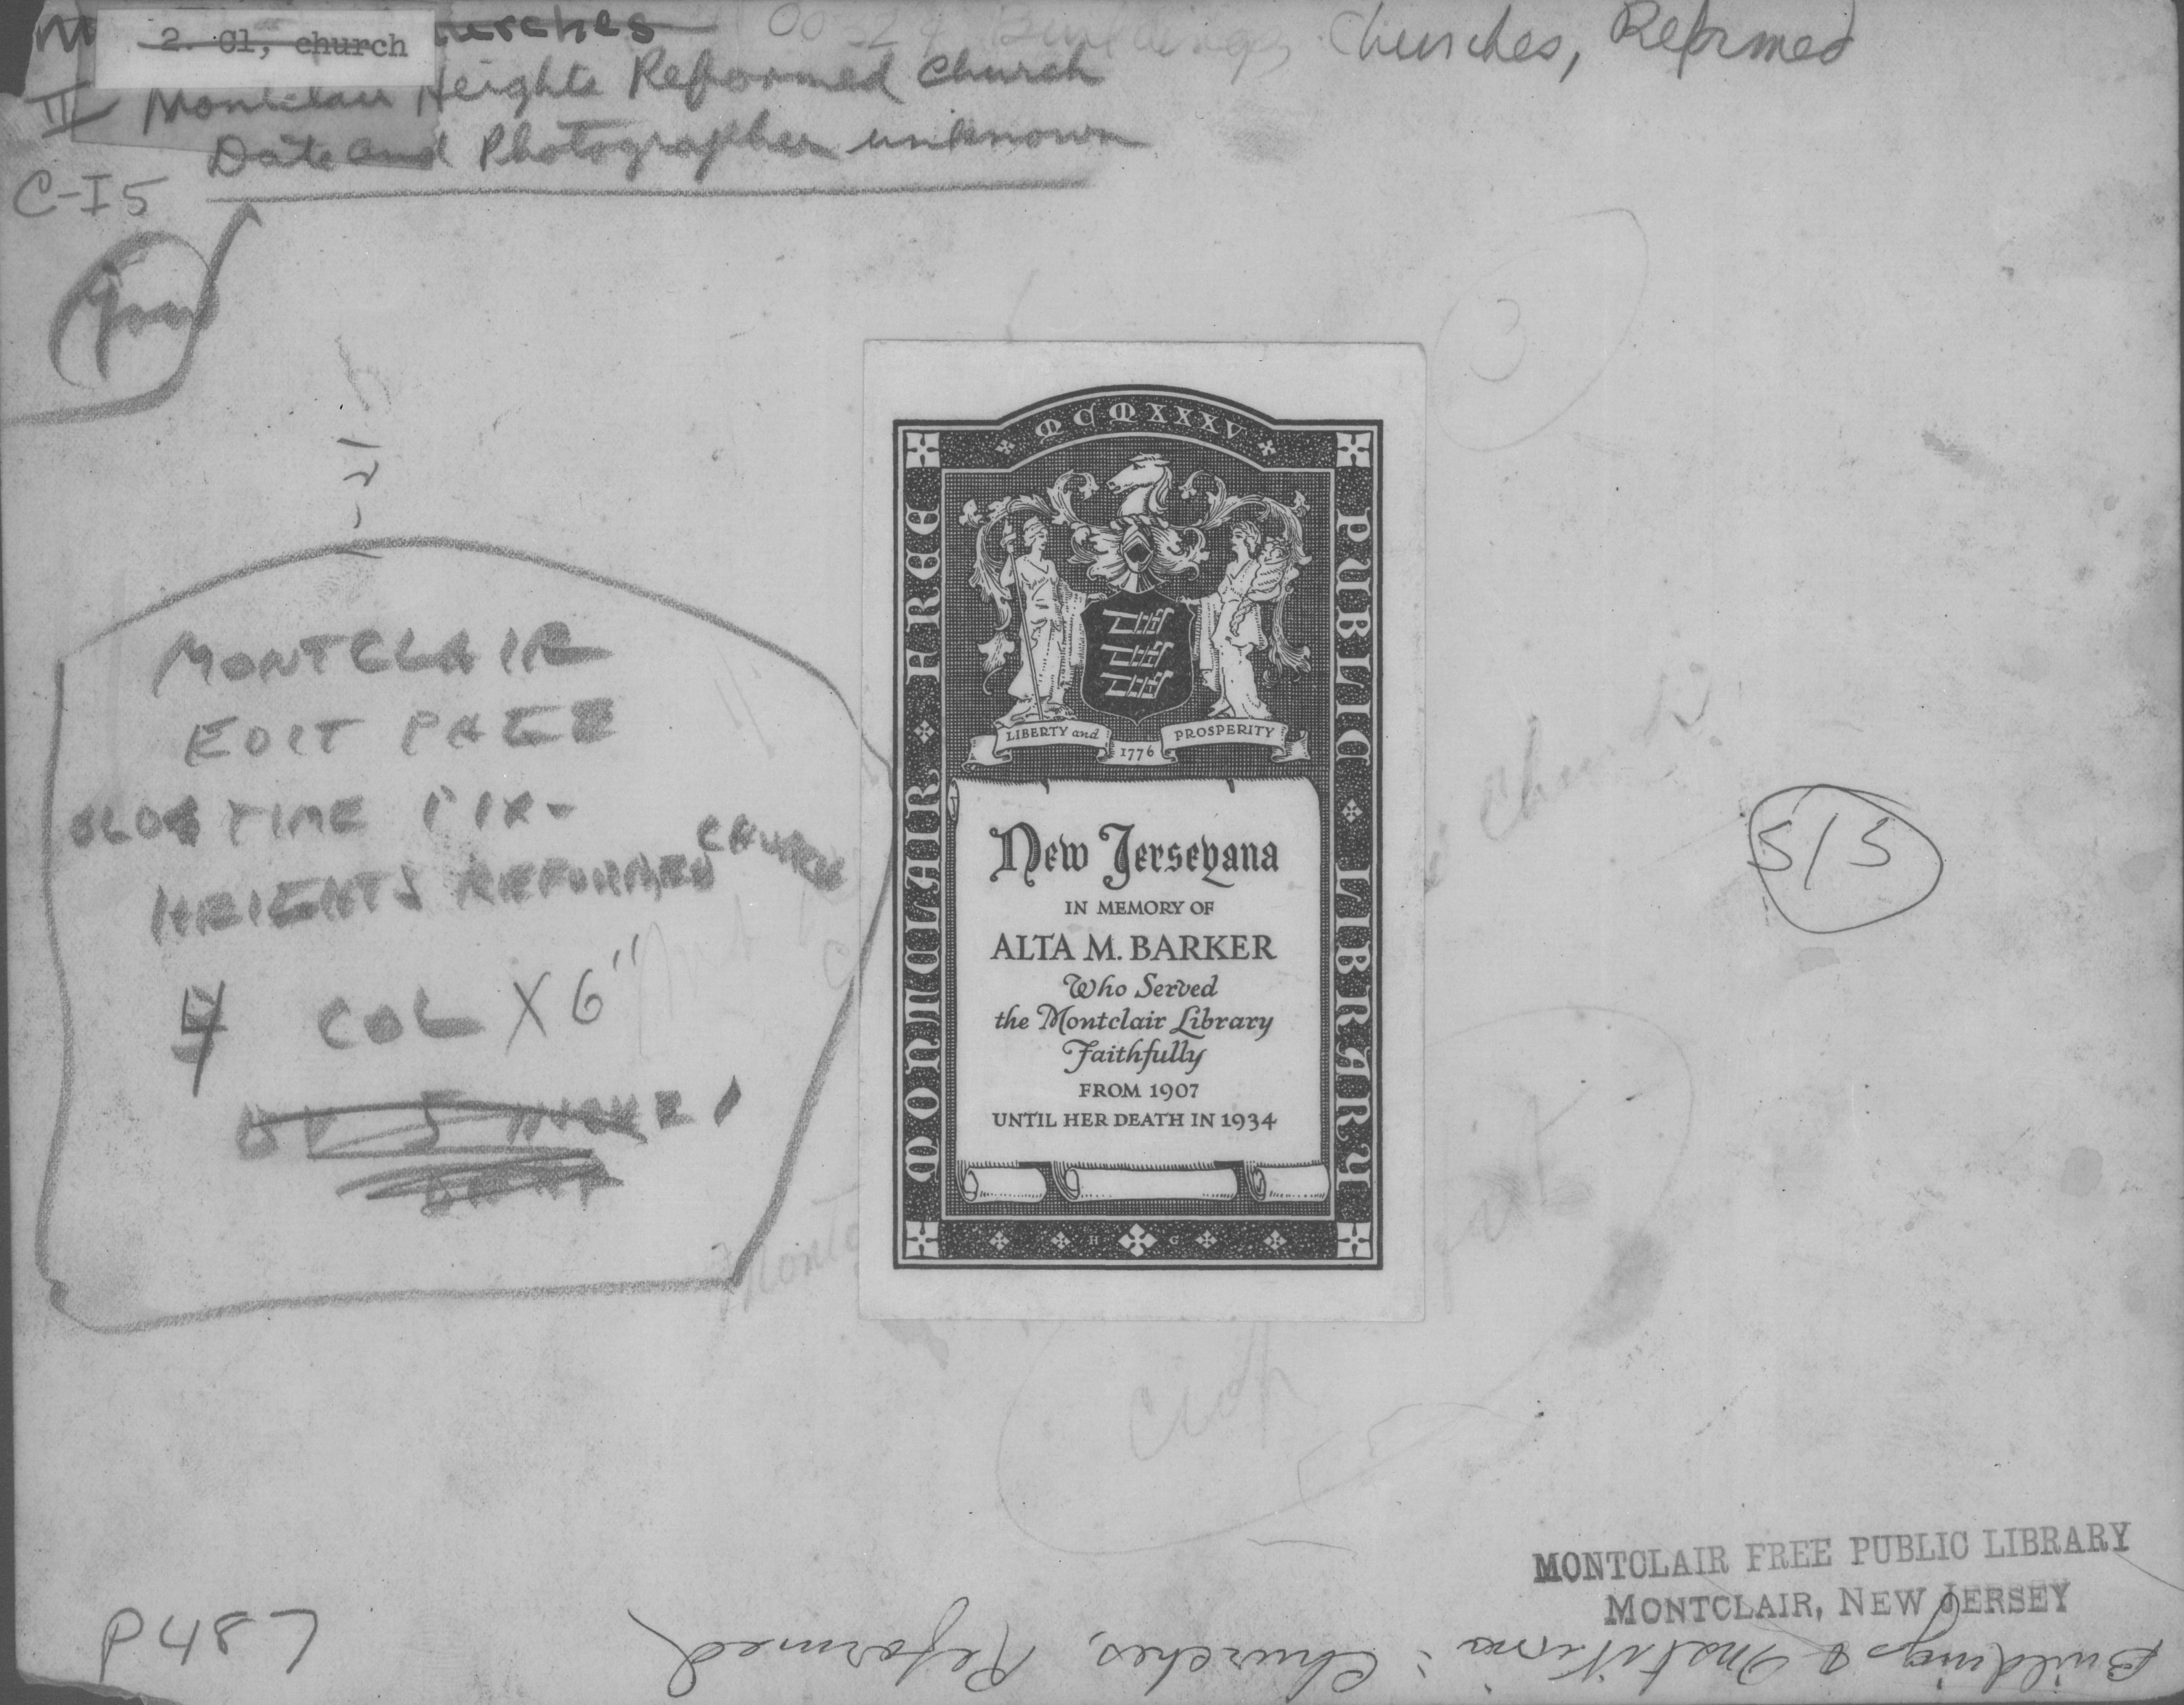 2. Cl, church
00324 Buildings, Churches, Reformed
III Montclair Heights Reformed Church
Date and Photographer unknown
C-I5
3
MONTCLAIR
EDIT PAGE
TIME PIX-
HEIGHTS REFORMED CHURCH
4 COL X 6"
MCMXXXV
MONTCLAIR FREE
PUBLIC LIBRARY
LIBERTY and
1776
PROSPERITY
New Jerseyana
IN MEMORY OF
ALTA M. BARKER
Who Served
the Montclair Library
Faithfully
FROM 1907
UNTIL HER DEATH IN 1934
H G
5/5
MONTCLAIR FREE PUBLIC LIBRARY
MONTCLAIR, NEW JERSEY
P487
Buildings & Institutions: Churches, Reformed